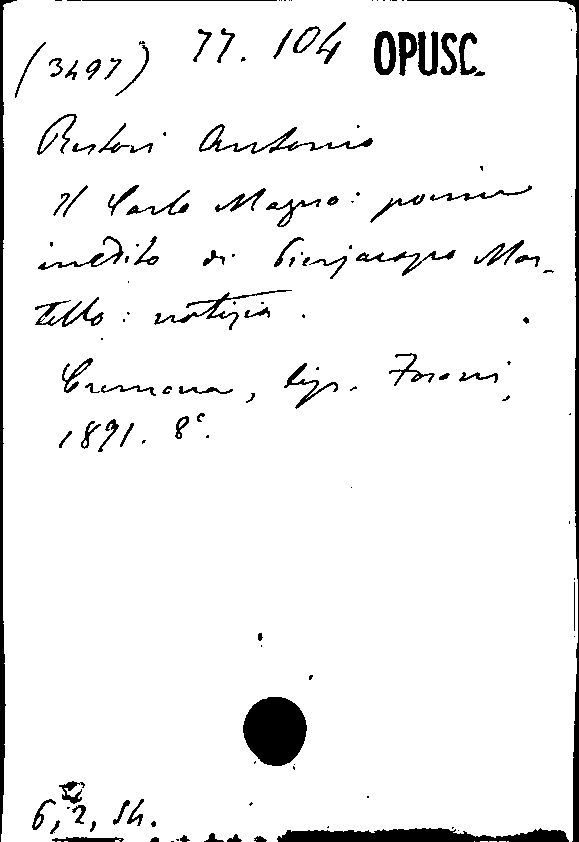 (3497) 77. 104 OPUSC.
Restori Antonio
Il Carlo Magno: poema
inedito di Pierjacopo Mar-
tello: notizia.
Cremona, tip. Foroni,
1891. 8°.
6, 2, 54.